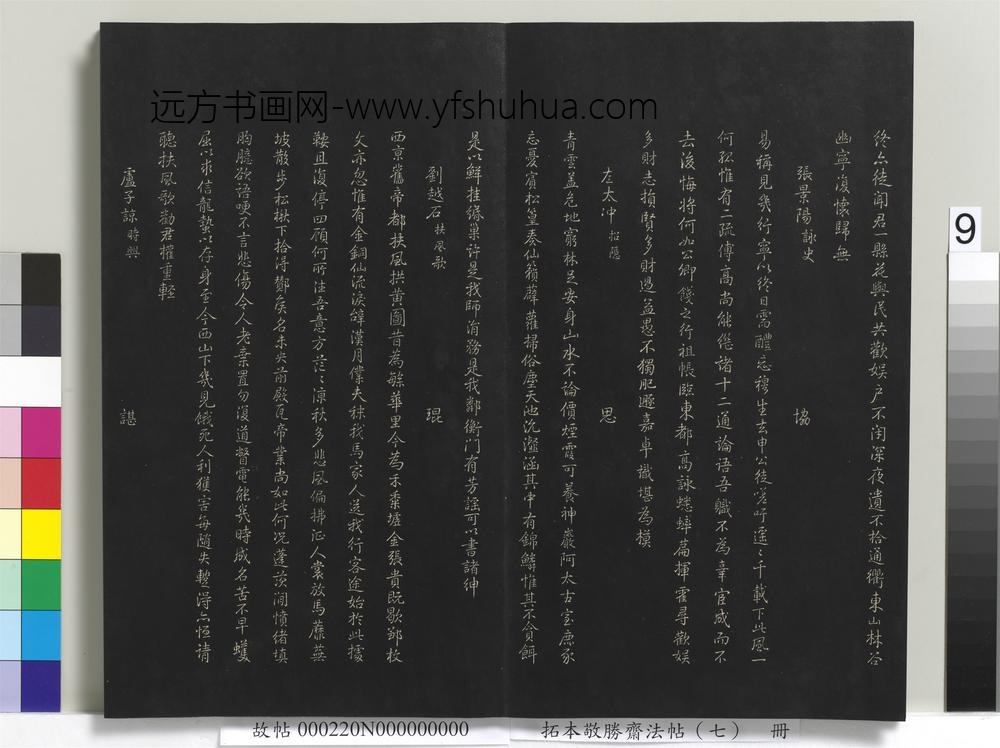 远方书画网-www.yfshuhua.com
終亦徒聞君一縣花與民共歡娱戶不闭深夜遺不拾通衢東山林谷
幽寧復懷歸無
張景陽詠史 協
易稱見幾行寧以終日需醴忘穆生去申公徒吁遥々千載下此風一
何孤惟有二疏傅高尚能繼諸十二通論語吾職不為辜官成而不
去後悔將何如公卿餞之行祖帳臨東都高詠蟋蟀篇揮霍尋歡娱
多財志損賢多財過益愚不獨肥遯嘉卓識堪為模
左太沖 招隱 思
青雲蓋危地窮林足安身山水不論價煙霞可養神巖阿太古室鹿豕
忘憂賓松篁奏仙籟薜蘿掃俗塵天池沉瀣涵其中有錦鱗惟其不貪餌
是以鮮挂緡巢許是我師涓務是我鄰衡門有芳謡可以書諸紳
劉越石 扶風歌 琨
西京舊帝都扶風拱黄圖昔為繁華里今為禾黍墟金張貴既歇鄒枚
文亦忽惟有金銅仙流淚辭漢月僕夫秣我馬家人送我行客途始於此據
鞍且復停四顧何所往吾意方茫々涼秋多悲風偏拂征人裳放馬蘼蕪
坡散步松栱下拾得鄼矦名未央前殿瓦帝業尚如此何况蓬茨間憤緒填
胸臆欲語哽不言悲傷令人老棄置勿復道晉電能幾時成名苦不早蠖
屈以求信龍蟄以存身至今西山下幾見餓死人利獲害每隨失暫得亦恒請
聽扶風歌勸君權重輕
盧子諒 時興 諶
9
故帖 000220N000000000
拓本敬勝齋法帖（七） 冊